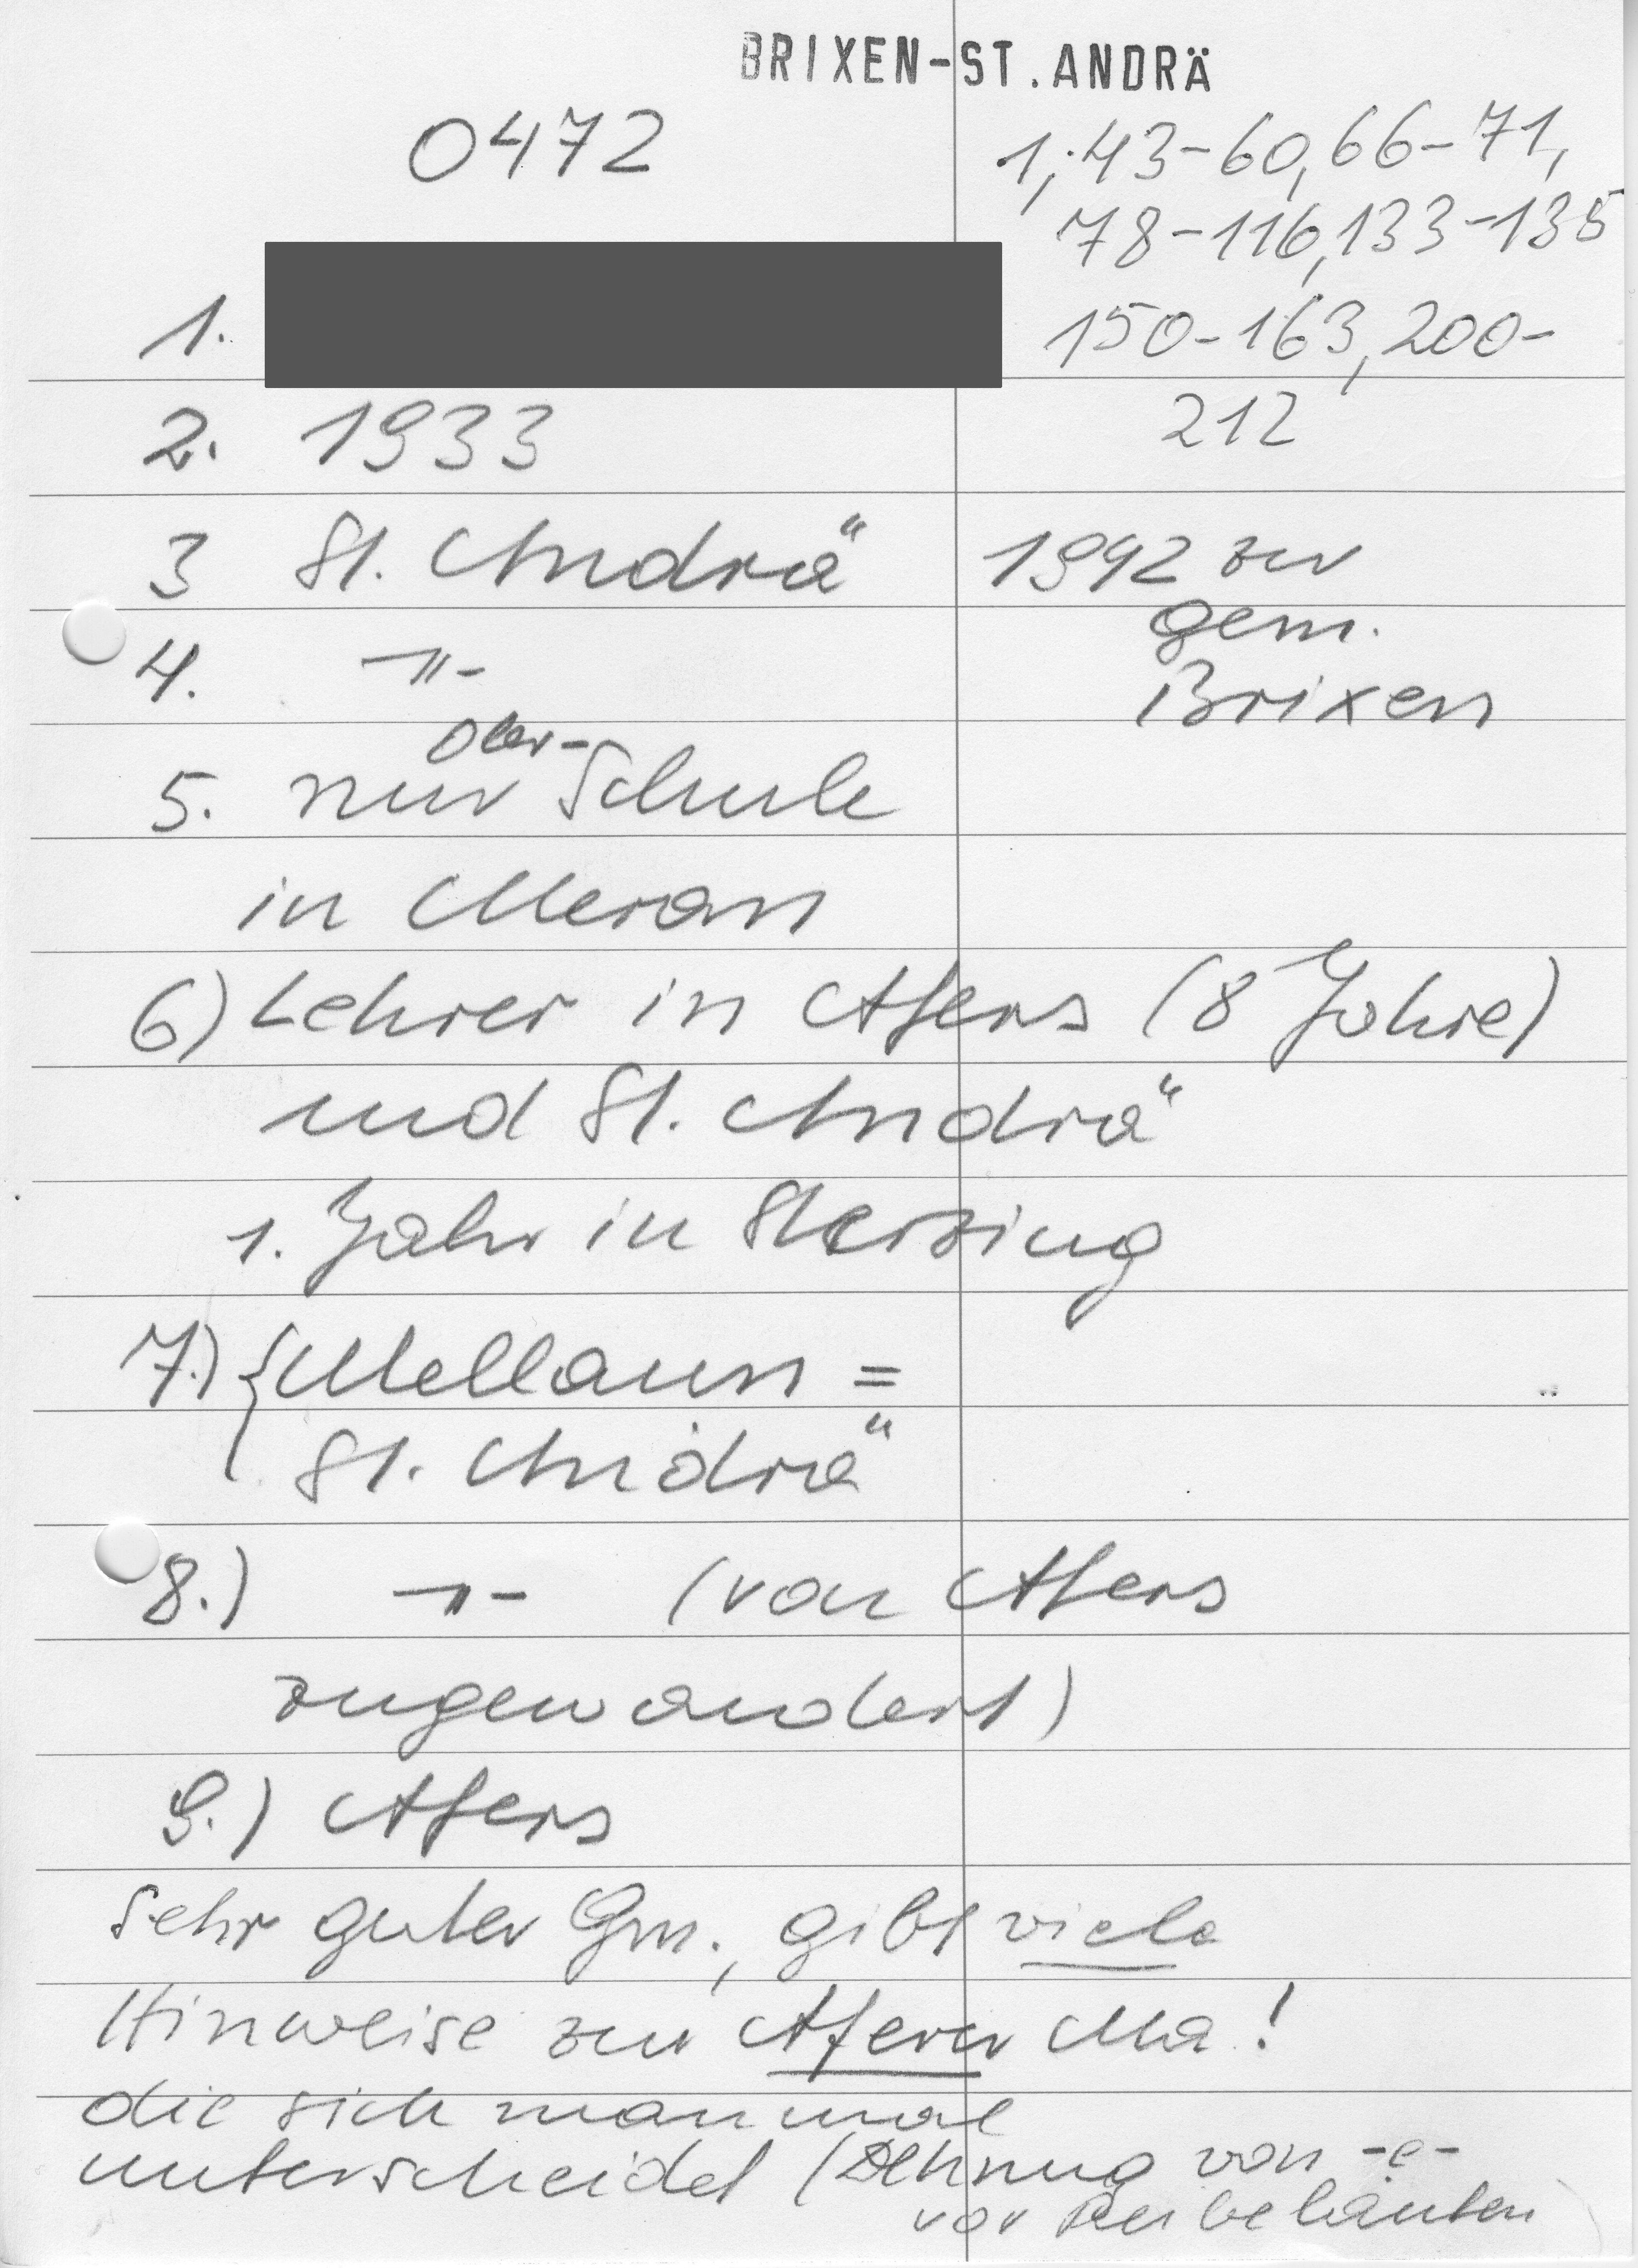 BRIXEN-ST.ANDRÄ
0472
1,43-60,66-71,
78-116,133-135
150-163,200-
212
1.
2. 1933
3 St. Andrä 1992 zur
gem.
4. -"- Brixen
ober-
5. nur Schule
in Meran
6) Lehrer in Afers (8 Jahre)
und St. Andrä
1. Jahr in Sterzing
7.) {Mellaun =
St. Andrä
8.) -"- (von Afers
zugewandert)
9.) Afers
Sehr guter Gm., gibt viele
Hinweise zur Aferer Ma!
die sich manmal
unterscheidet (Dehnung von -e-
vor Reibelauten